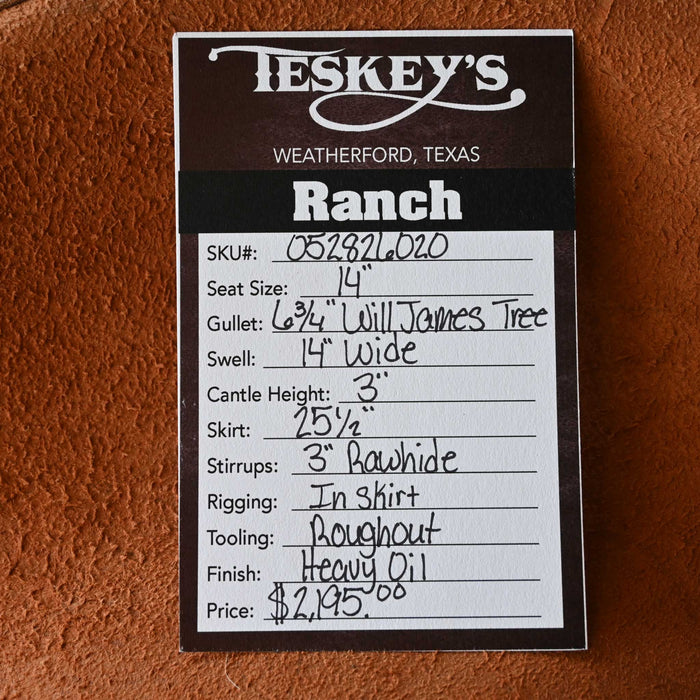 TESKEY'S
WEATHERFORD, TEXAS
Ranch
SKU#: 052826020
Seat Size: 14"
Gullet: 6 3/4" Will James Tree
Swell: 14" Wide
Cantle Height: 3"
Skirt: 25 1/2"
Stirrups: 3" Rawhide
Rigging: In Skirt
Tooling: Roughout
Finish: Heavy Oil
Price: $2,195.00